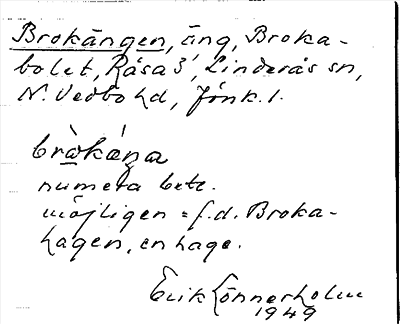 Brokängen, äng, Broka-
bolet, Råsa 3, Linderås sn,
N. Vedbo hd, Jönk. l.
bròkǽŋa
numera bete.
möjligen = f.d. Broka-
hagen, en hage.
Erik Lönnerholm
1949